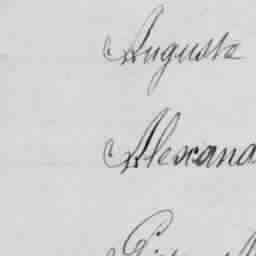 Augusta
Alexand